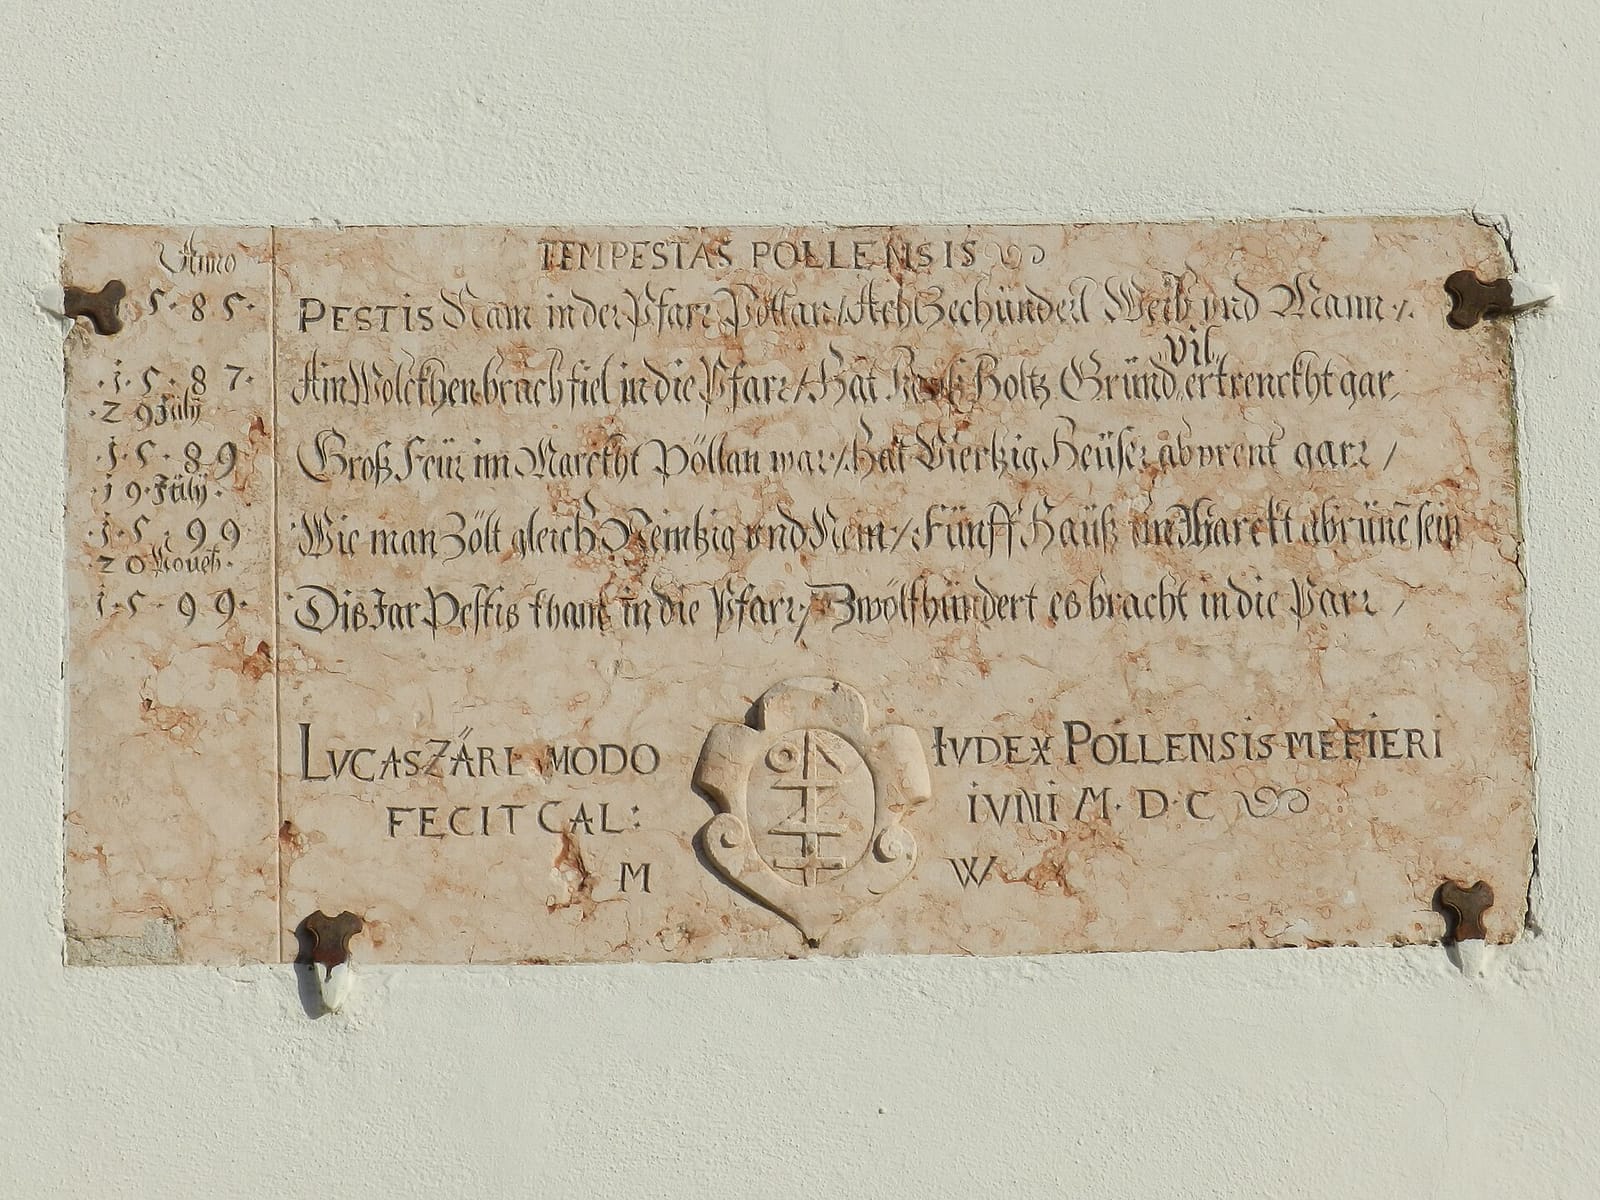 Anno TEMPESTAS PÖLLENSIS
5·8·5· PESTIS Nam in der Pfarr Pöllan / Acht Zechündert Weib vnd Mann /.
·1·5·8·7· Ain Wolckhenbrach fiel in die Pfarr / Hat Holtz Gründ vil ertrenckht gar,
·2 9 Jüly
·1·5·8·9 Groß Feür im Marckht Pöllan war / Hat Viertzig Heüser abprent garr /
·1 9·Jüly·
·1·5·9 9 Wie man Zölt gleich Neintzig vnd Nein / Fünff Haüß im Marckt abrüñe sein
·2 0 Noueb·
1·5·9 9· Dis Jar Pestis kham in die Pfarr / Zwölfhündert es bracht in die Parr /
LVCAS ZÄRL MODO IVDEX POLLENSIS ME FIERI
FECIT CAL: IVNI M·D·C
M W